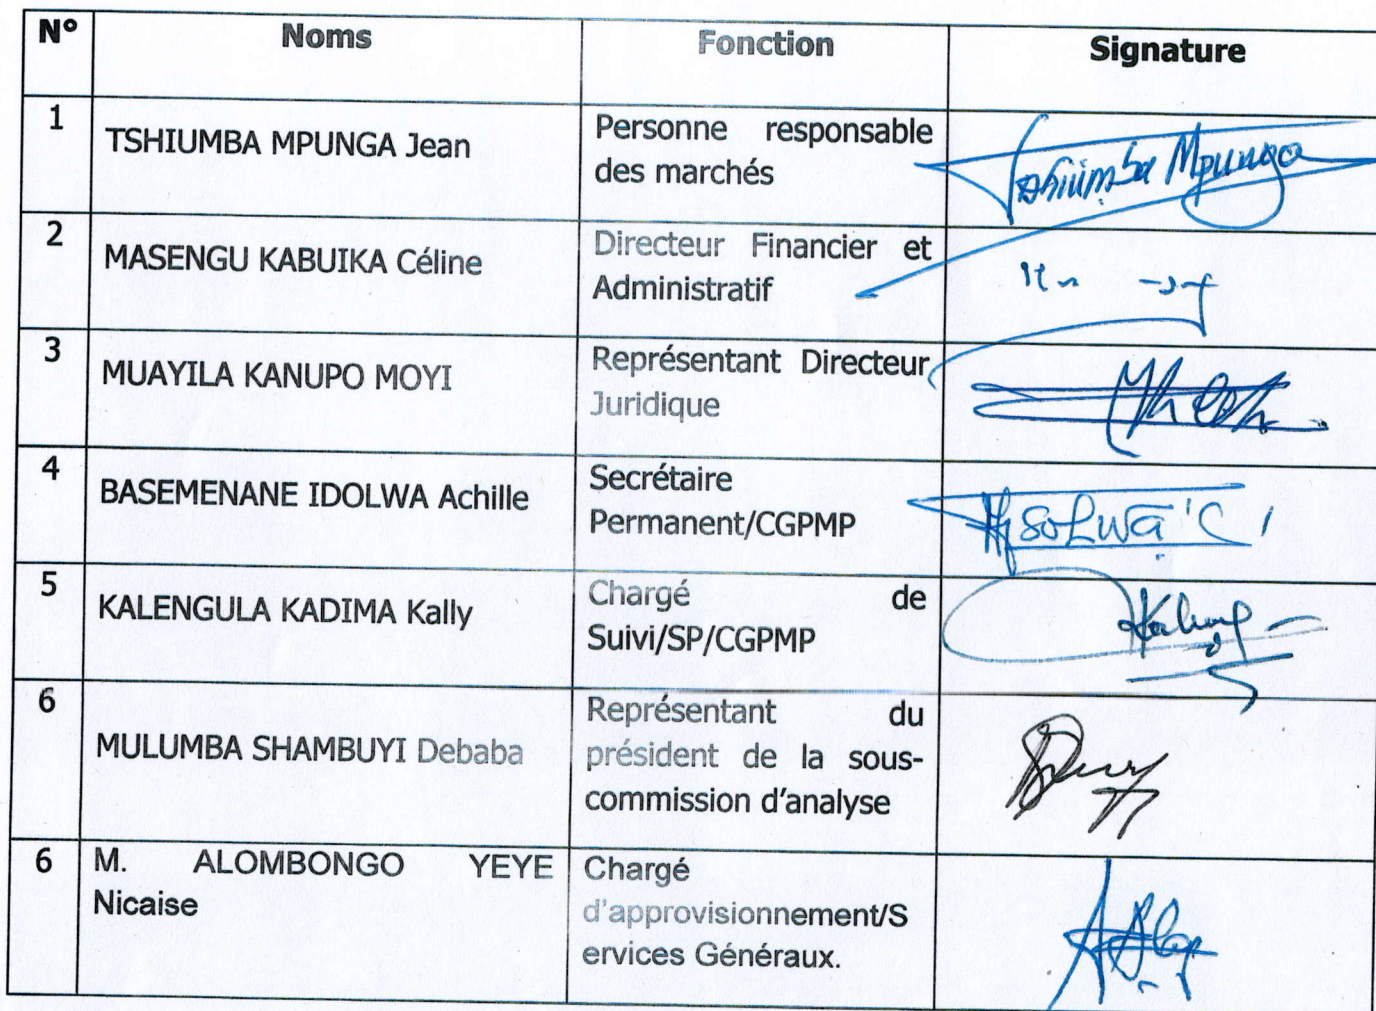 N° Noms Fonction Signature
1 TSHIUMBA MPUNGA Jean Personne responsable
des marchés
Tshiumba Mpunga
2 MASENGU KABUIKA Céline Directeur Financier et
Administratif
3 MUAYILA KANUPO MOYI Représentant Directeur
Juridique
4 BASEMENANE IDOLWA Achille Secrétaire
Permanent/CGPMP
5 KALENGULA KADIMA Kally Chargé de
Suivi/SP/CGPMP
6 MULUMBA SHAMBUYI Debaba Représentant du
président de la sous-
commission d'analyse
6 M. ALOMBONGO YEYE
Nicaise
Chargé
d'approvisionnement/S
ervices Généraux.